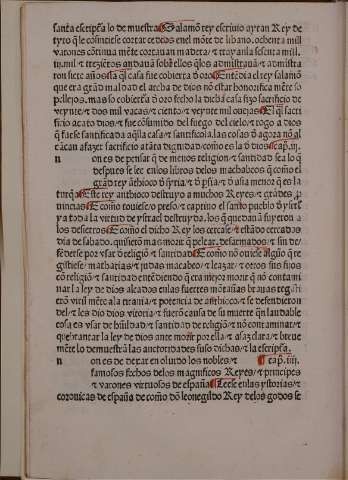 santa escriptura lo demuestra Salamõ rey escriuio ayran Rey de
tyro q̃ le cõsintiese cortar cedros enel mõte de libano. ochenta mill
varones cõtinua mẽte cortauan madera/ ⁊ trayanla sesenta mill.
⁊ trezientos andauã sobre ellos q̃ los admistrauã/ ⁊ admistra
ron siete años fasta q̃l casa fue cobierta dʼoro Entẽdia el rey salamõ
que era grãd maldad el archa de dios nõ estar honorifica mẽte so
pellejos. mas so cobierta dʼ oro fecho la dicha casa fizo sacrificio de
veynte/ ⁊ dos mill vacas/ ⁊ ciento/ ⁊ veynte mil ouejas El q̃l sacri
ficio acato dios/ ⁊ fue cõsumido del fuego del cielo/ ⁊ rogo a dios
q̃ fuese santificada aq̃lla casa/ ⁊ santificola. las cosas dʼ agora nõ al
cãçan afazer sacrificio a tãta dignidad/ como es la dʼ dios cap. iij.
n on es de pensar q̃ de menos religion/ ⁊ santidad sea lo q̃
despues se lee enlos libros delos machabeos q̃ como el
grãd rey ãthioco dʼ syria/ ⁊ dʼ psia/ ⁊ dʼ asia menor que es la
turq̃a Este rey anthioco destruyo a muchos Reyes/ ⁊ grãdes p
uincias E como ouiese/ ⁊ preso/ ⁊ captiuo el santo pueblo dʼ ysrl
⁊ a toda la virtud de ysrael destruyda. los q̃ quedauã fuyeron a
los desiertos E como el dicho Rey los cercase/ ⁊ estãdo cercados
dia de sabado. quisierõ mas morir q̃ pelear. desarmados/ ⁊ sin de/
federse por vsar dʼ religiõ/ ⁊ santidad E como nõ ouiese alguno que
registiese/ matharias/ ⁊ judas macabeo/ ⁊ leazar/ ⁊ otros sus fijos
cõ religiõ/ ⁊ santidad entẽdiendo q̃ era mejor morir q̃ nõ contami
nar la ley de dios alcadas enlas fuertes mõtañas brauas registi
erõ viril mẽte ala tirania/ ⁊ potencia de anthioco/ ⁊ se defendieron
del/ ⁊ les dio dios vitoria/ ⁊ fuerõ causa de su muerte q̃n laudable
cosa es vsar de hũildad/ ⁊ santidad de religiõ/ ⁊ nõ contaminar/ ⁊
quebrantar la ley de dios ante morir por ella/ ⁊ asaz clara/ ⁊ breue
mẽte lo demuestrã las auctoridades suso dichas/ ⁊ la escriptura.
n on es de dexar en oluido los nobles/ ⁊ cap. iiij.
famosos fechos delos magnificos Reyes/ ⁊ principes
⁊ varones virtuosos de españa Leese enlas ystorias/ ⁊
coronicas de españa de como dõ leonegildo Rey delos godos se